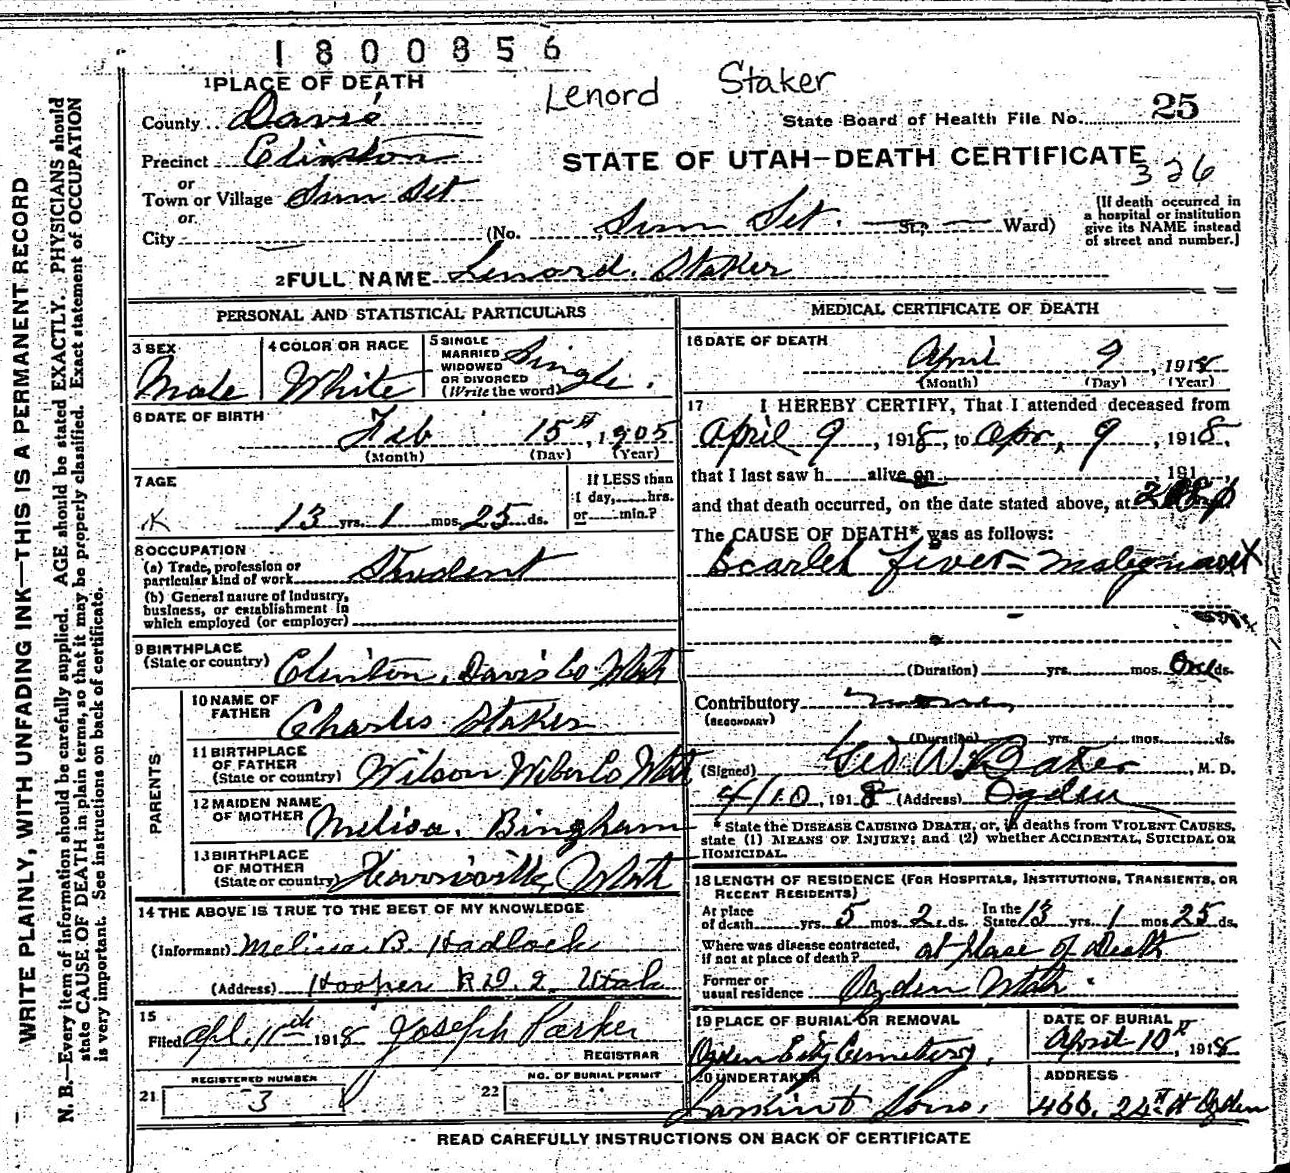 1800856
Lenord Staker
1 PLACE OF DEATH
County Davis
State Board of Health File No. 25
Precinct Clinton
STATE OF UTAH—DEATH CERTIFICATE
326
or
Town or Village Sun Set
or
City
(No. Sun Set. St.; Ward)
[If death occurred in
a hospital or institution
give its NAME instead
of street and number.]
2 FULL NAME Lenord. Staker
PERSONAL AND STATISTICAL PARTICULARS
3 SEX
Male
4 COLOR OR RACE
White
5 SINGLE
MARRIED
WIDOWED
OR DIVORCED
(Write the word)
Single.
6 DATE OF BIRTH
Feb 15th, 1905
(Month) (Day) (Year)
7 AGE
13 yrs. 1 mos. 25 ds.
If LESS than
1 day, hrs.
or min.?
8 OCCUPATION
(a) Trade, profession or
particular kind of work Student
(b) General nature of Industry,
business, or establishment in
which employed (or employer)
9 BIRTHPLACE
(State or country) Clinton, Davis Co Utah
PARENTS
10 NAME OF
FATHER Charles Staker
11 BIRTHPLACE
OF FATHER
(State or country) Wilson Weber Co Utah
12 MAIDEN NAME
OF MOTHER Melisa. Bingham
13 BIRTHPLACE
OF MOTHER
(State or country) Harrisville, Utah
14 THE ABOVE IS TRUE TO THE BEST OF MY KNOWLEDGE
(Informant) Melissa B. Hadlock
(Address) Hooper R.D. 2. Utah
15
Filed Apl. 11th 1918 Joseph Parker
REGISTRAR
21 REGISTERED NUMBER
3
22 NO. OF BURIAL PERMIT
MEDICAL CERTIFICATE OF DEATH
16 DATE OF DEATH
April 9, 1918
(Month) (Day) (Year)
17 I HEREBY CERTIFY, That I attended deceased from
April 9, 1918, to Apr, 9, 1918,
that I last saw h alive on 191,
and that death occurred, on the date stated above, at
The CAUSE OF DEATH* was as follows:
Scarlet fever - malignant
(Duration) yrs. mos. One ds.
Contributory none
(SECONDARY)
(Duration) yrs. mos. ds.
(Signed) Geo W Baker, M. D.
4/10, 1918 (Address) Ogden
* State the DISEASE CAUSING DEATH, or, in deaths from VIOLENT CAUSES,
state (1) MEANS OF INJURY; and (2) whether ACCIDENTAL, SUICIDAL OR
HOMICIDAL.
18 LENGTH OF RESIDENCE (FOR HOSPITALS, INSTITUTIONS, TRANSIENTS, OR
RECENT RESIDENTS)
At place
of death yrs. 5 mos. 2 ds. In the
State 13 yrs. 1 mos. 25 ds.
Where was disease contracted,
if not at place of death? at place of Death
Former or
usual residence Ogden Utah
19 PLACE OF BURIAL OR REMOVAL
Ogden City Cemetery.
DATE OF BURIAL
April 10th, 1918
20 UNDERTAKER
Larkin & Sons.
ADDRESS
466. 24th St Ogden
READ CAREFULLY INSTRUCTIONS ON BACK OF CERTIFICATE
WRITE PLAINLY, WITH UNFADING INK—THIS IS A PERMANENT RECORD
N. B.—Every item of information should be carefully supplied. AGE should be stated EXACTLY. PHYSICIANS should
state CAUSE OF DEATH in plain terms, so that it may be properly classified. Exact statement of OCCUPATION
is very important. See instructions on back of certificate.